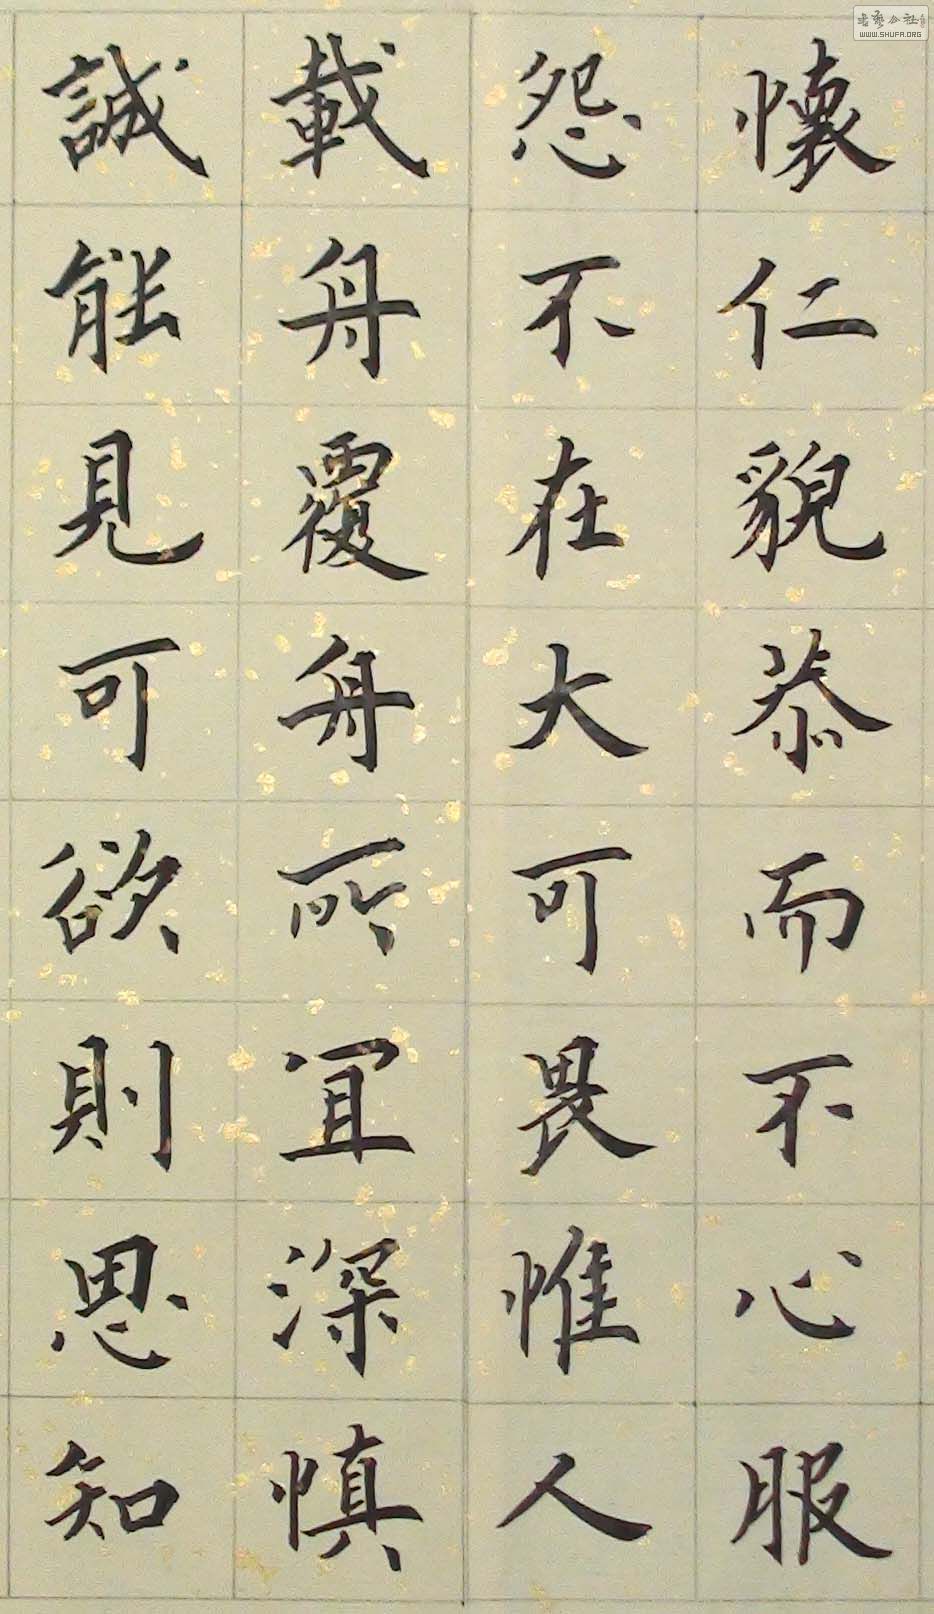 懷仁貌恭而不心服
怨不在大可畏惟人
載舟覆舟所宜深慎
誠能見可欲則思知
WWW.SHUFA.ORG